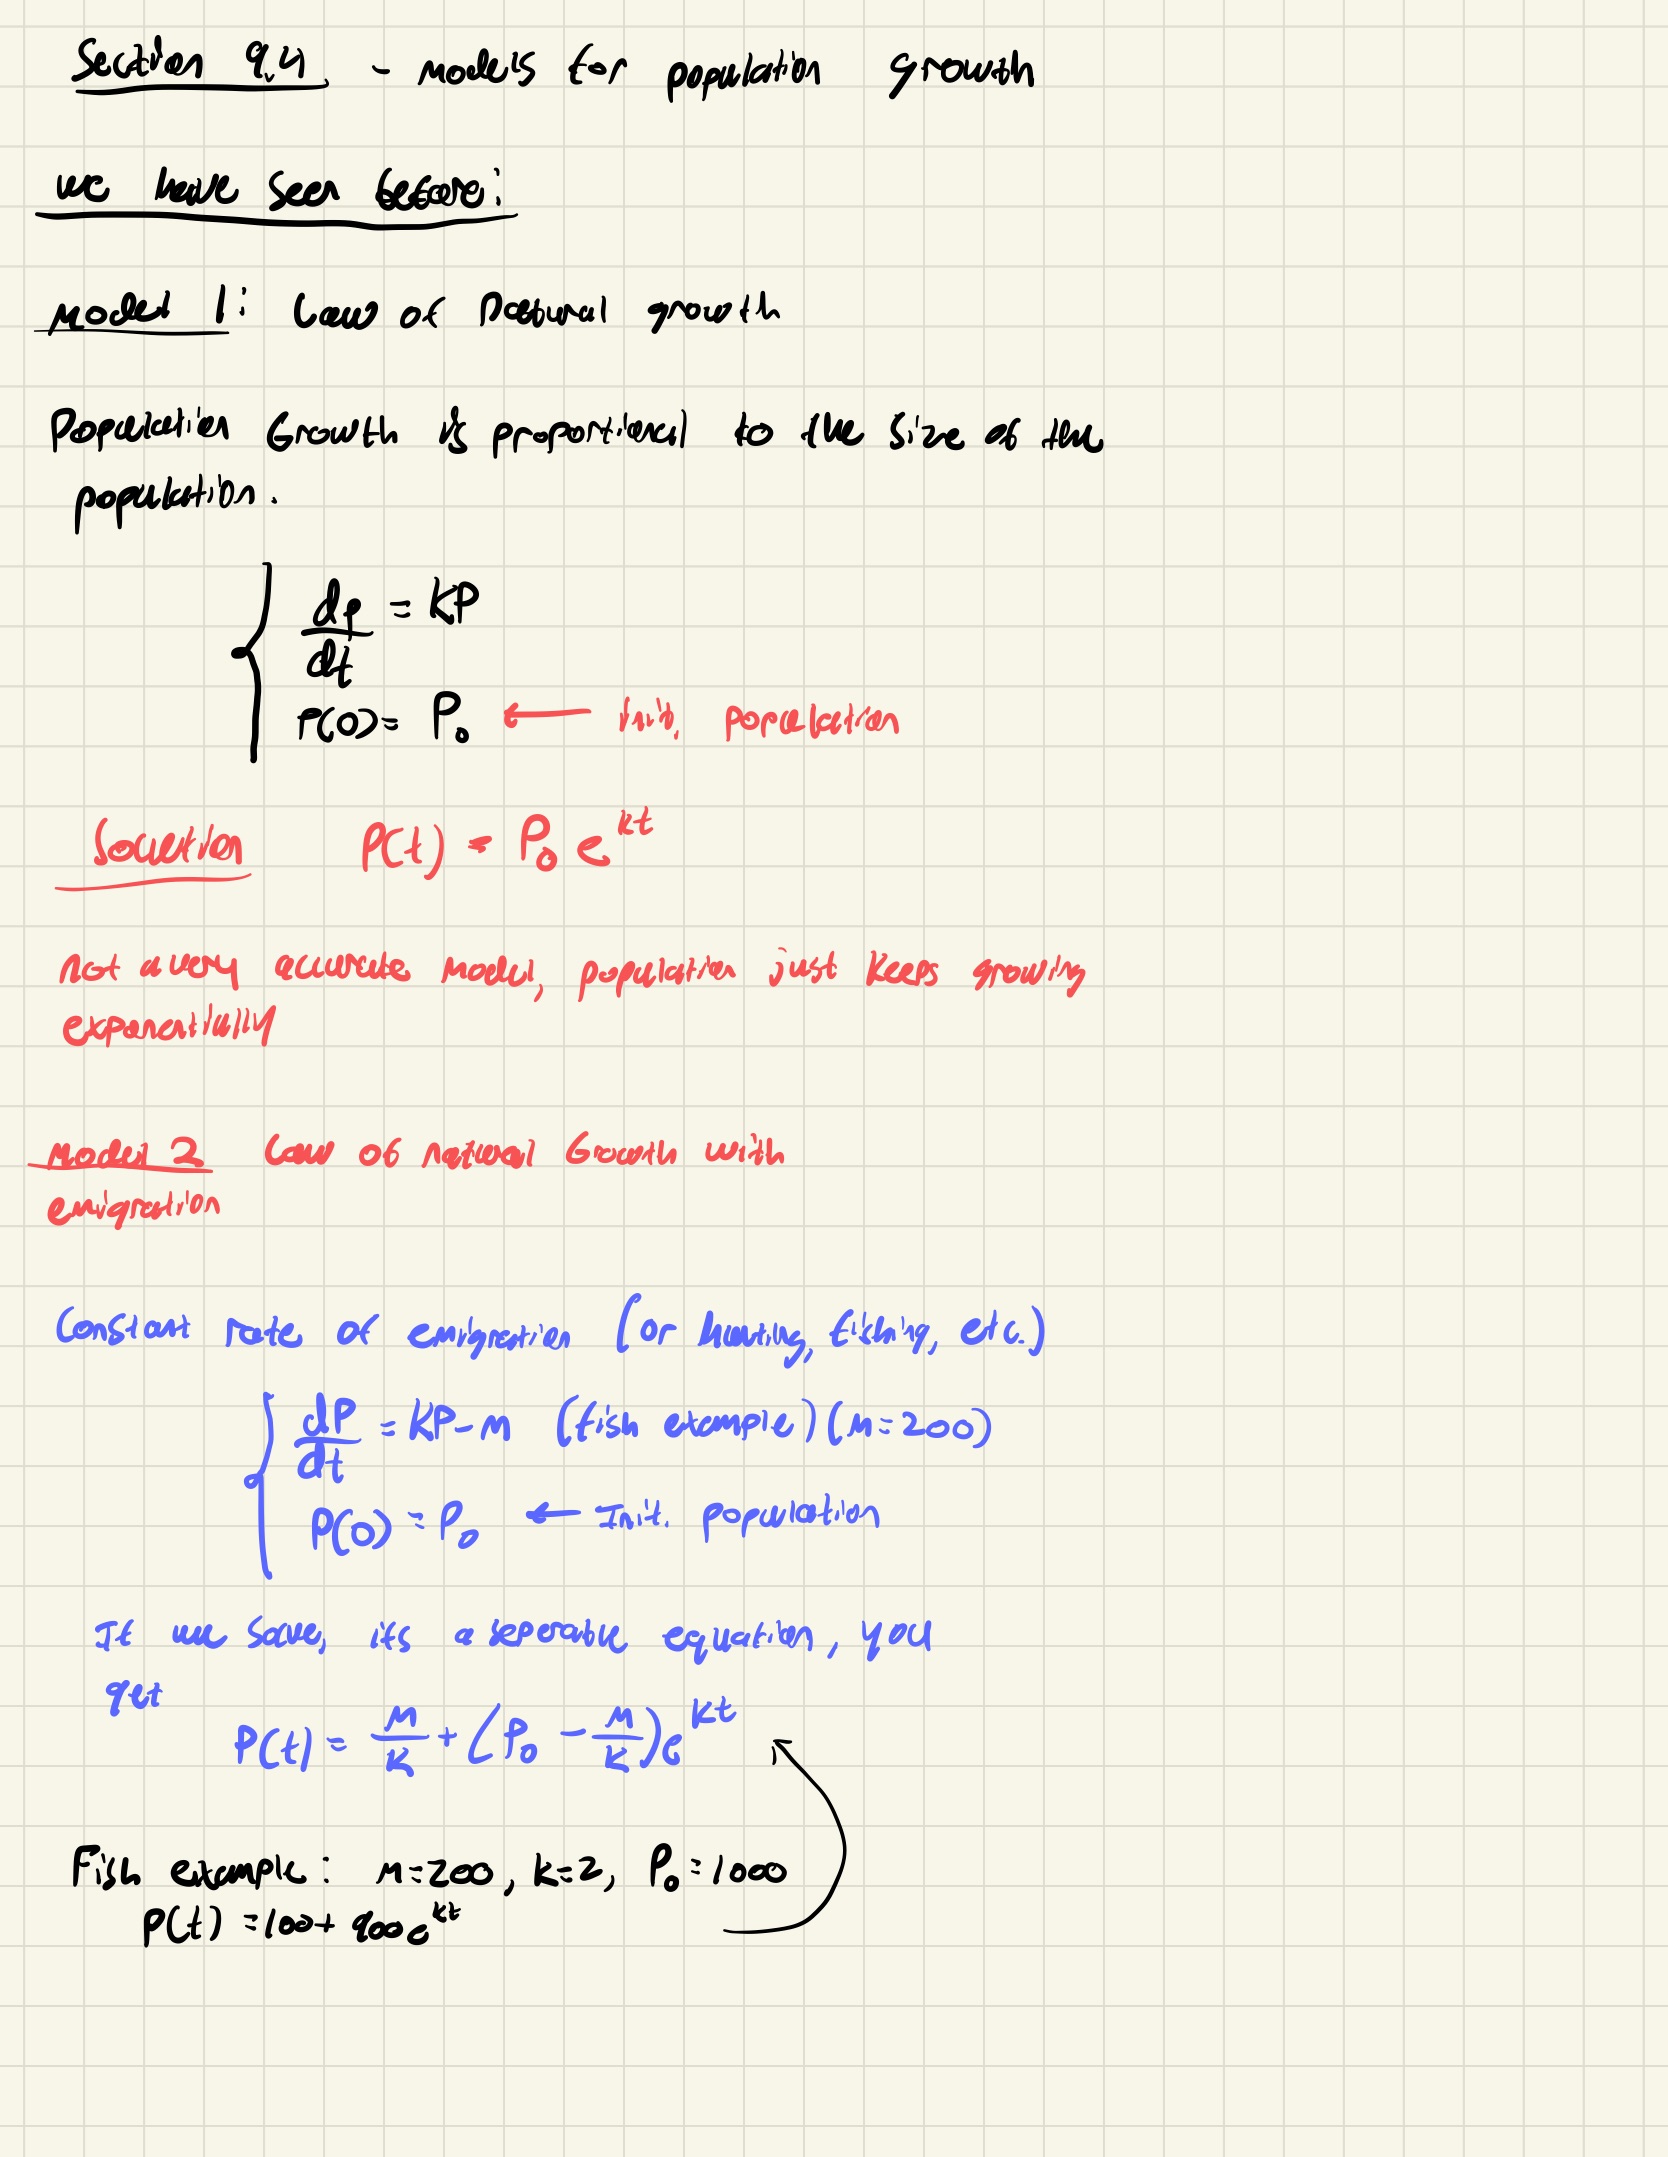 Section 9.4 - models for population growth
we have seen before:
Model 1: Law of natural growth
Population Growth is proportional to the size of the
population.
dP/dt = KP
P(0) = P₀ ← Init. population
Solution P(t) = P₀ e^kt
not a very accurate model, population just keeps growing
exponentially
Model 2 Law of natural Growth with
emigration
Constant rate of emigration (or hunting, fishing, etc.)
dP/dt = KP - M (fish example) (M = 200)
P(0) = P₀ ← Init. population
If we solve, its a seperable equation, you
get
P(t) = M/K + (P₀ - M/K)e^Kt
Fish example: M=200, k=2, P₀=1000
P(t) = 100 + 900e^kt